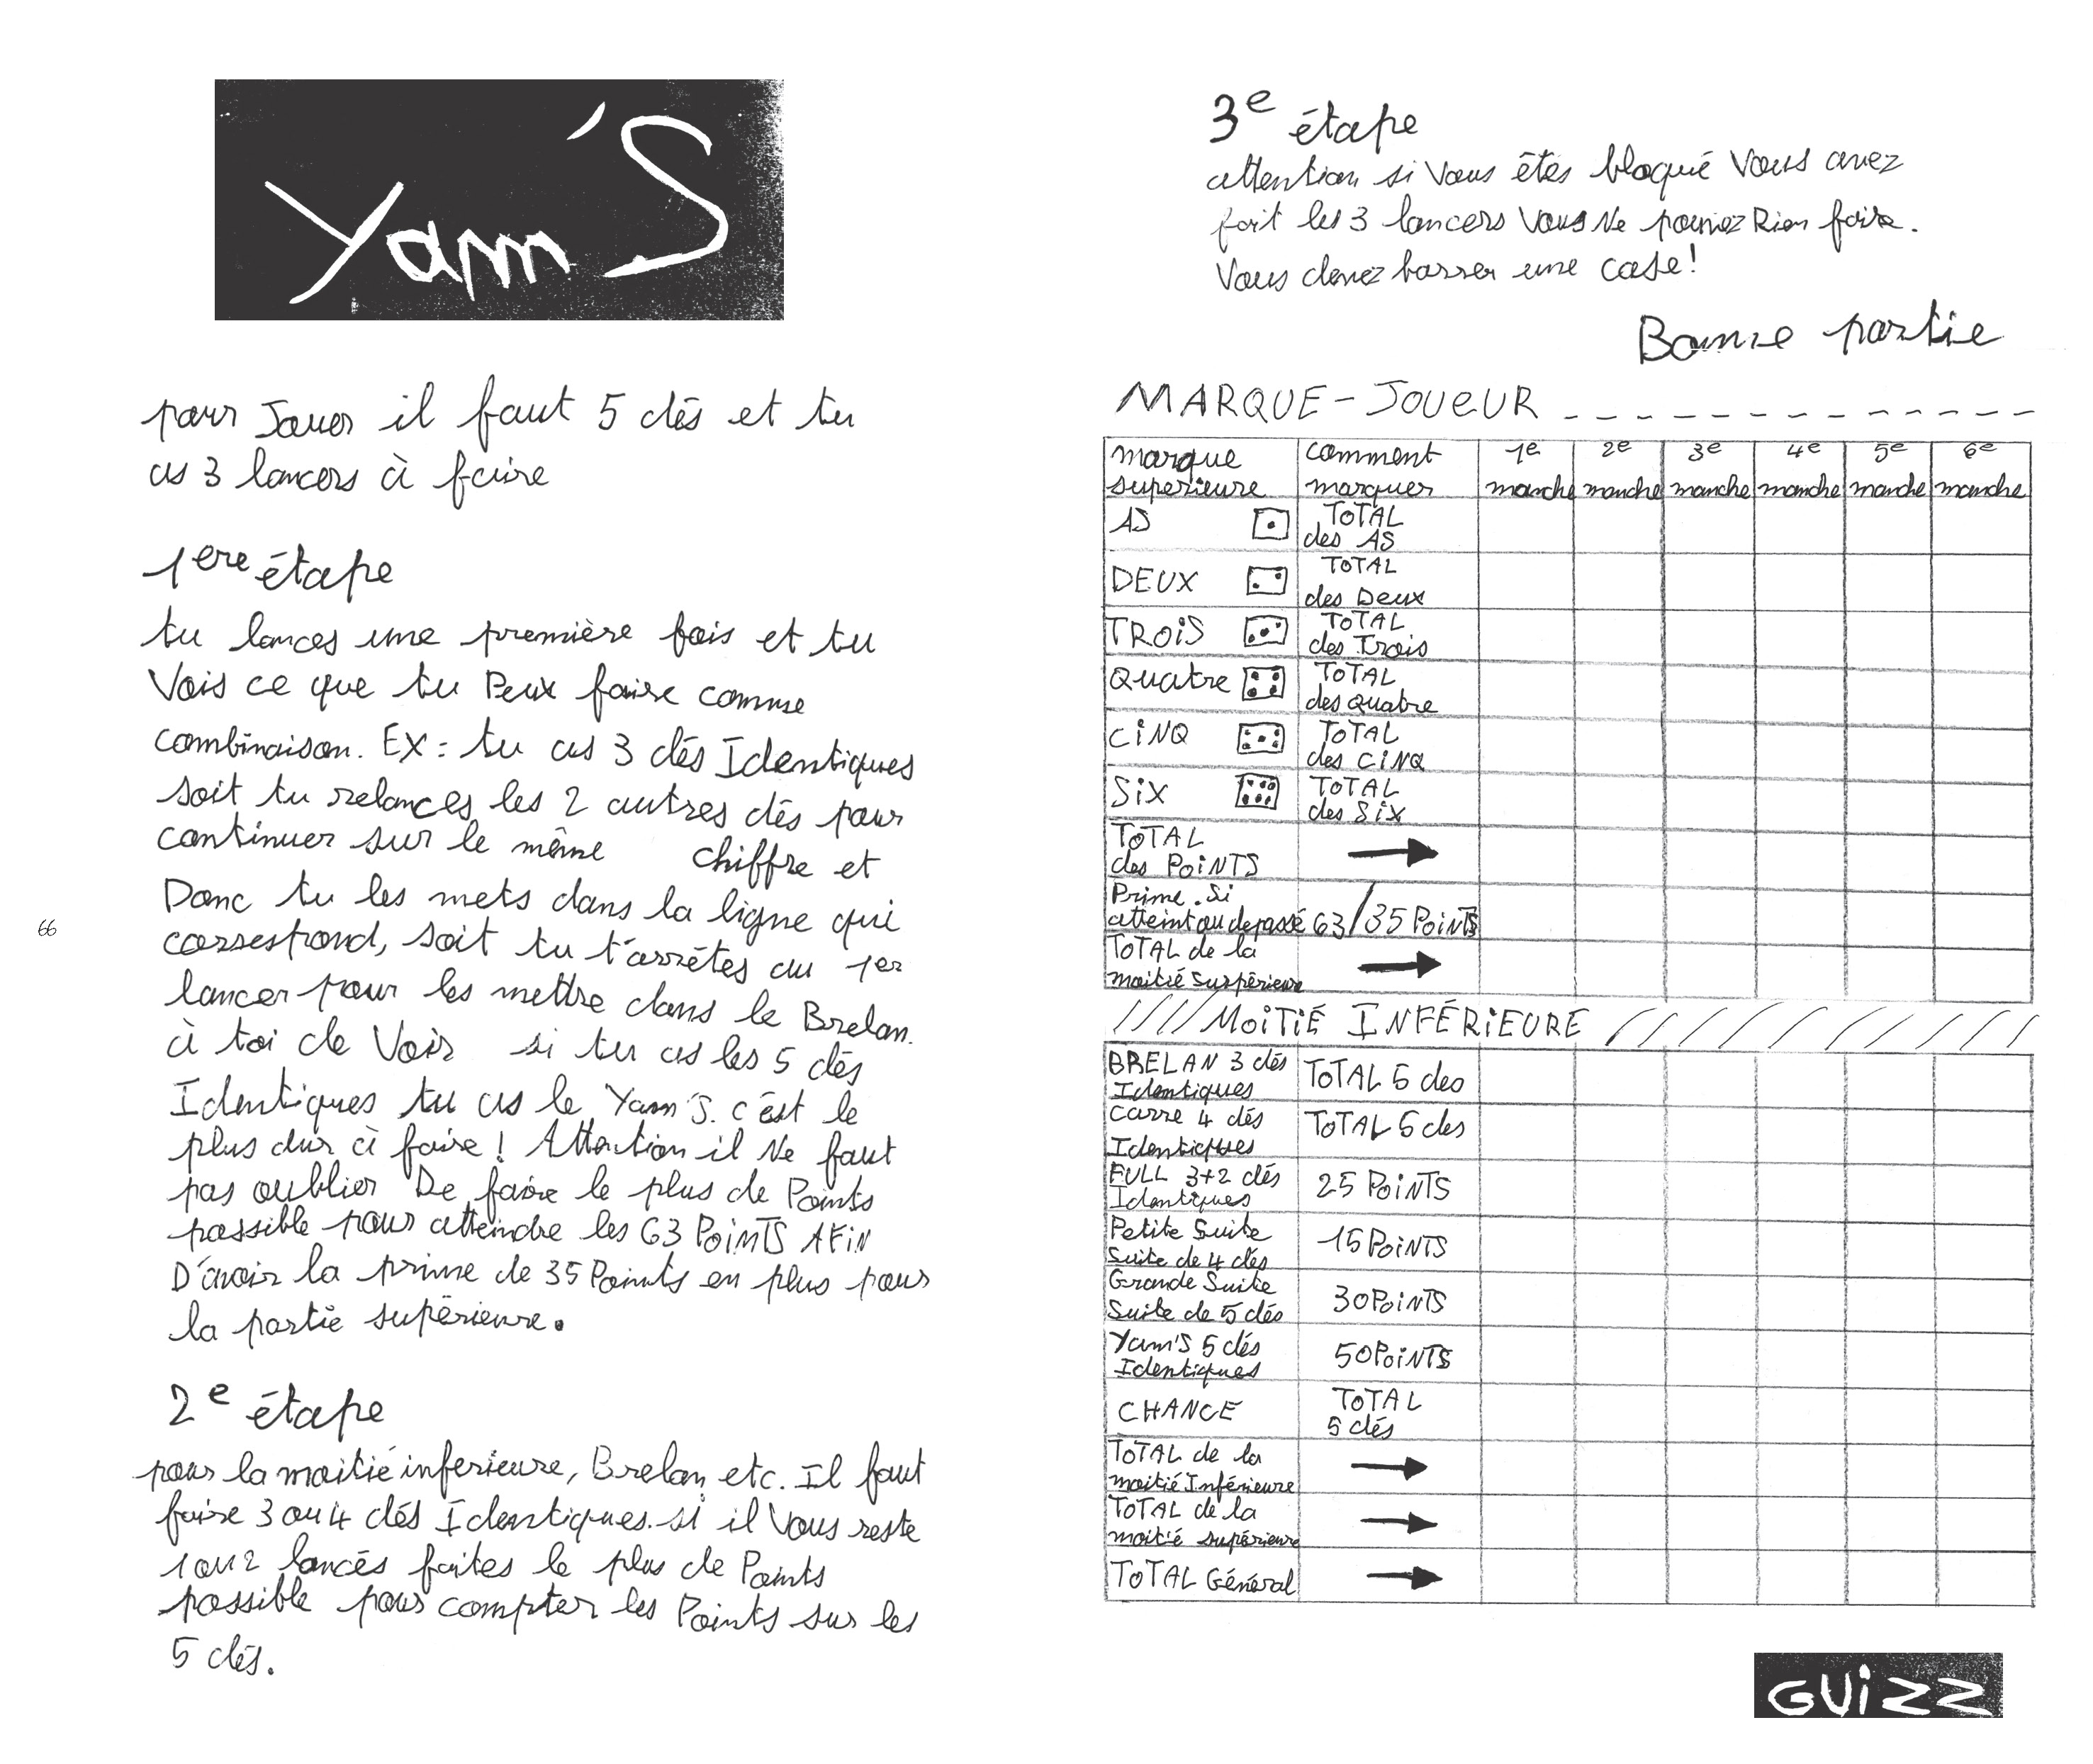 Yam'S
pour Jouer il faut 5 dés et tu
as 3 lancers à faire
1ere étape
tu lances une première fois et tu
Vois ce que tu Peux faire comme
combinaison. EX: tu as 3 dés Identiques
soit tu relances les 2 autres dés pour
continuer sur le même chiffre et
Donc tu les mets dans la ligne qui
correspond, soit tu t'arrêtes au 1er
lancer pour les mettre dans le Brelan.
à toi de Voir si tu as les 5 dés
Identiques tu as le Yam'S. c'est le
plus dur à faire ! Attention il Ne faut
pas oublier De faire le plus de Points
possible pour atteindre les 63 POiNTS AFiN
D'avoir la prime de 35 Points en plus pour
la partie supérieure.
2e étape
pour la moitié inferieure, Brelan etc. Il faut
faire 3 ou 4 dés Identiques. si il Vous reste
1 ou 2 lancés faites le plus de Points
possible pour compter les Points sur les
5 dés.
66
3e étape
attention si Vous êtes bloqué Vous avez
fait les 3 lancers Vous Ne pouvez Rien faire.
Vous devez barrer une case!
Bonne partie
MARQUE-JOUEUR _ _ _ _ _ _ _ _ _ _ _ _ _
marque superieure comment marquer 1e manche 2e manche 3e manche 4e manche 5e manche 6e manche
AS TOTAL des AS
DEUX TOTAL des Deux
TROiS TOTAL des Trois
Quatre TOTAL des quatre
CiNQ TOTAL des CiNQ
SiX TOTAL des SiX
TOTAL des POiNTS →
Prime. Si
atteint ou depassé 63/35 POiNTS
TOTAL de la
moitié Suspérieure →
//// MOiTiÉ INFÉRiEURE //////////
BRELAN 3 dés Identiques TOTAL 5 des
Carre 4 dés Identiques TOTAL 5 des
FULL 3+2 dés Identiques 25 POiNTS
Petite Suite Suite de 4 dés 15 POiNTS
Grande Suite Suite de 5 dés 30 POiNTS
Yam'S 5 dés Identiques 50 POiNTS
CHANCE TOTAL 5 dés
TOTAL de la moitié Inférieure →
TOTAL de la moitié supérieure →
TOTAL Général →
GUiZZ